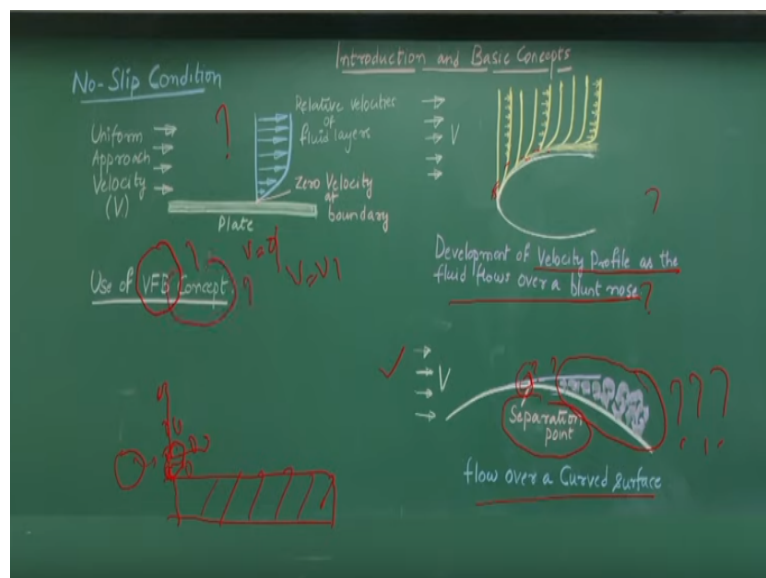 Introduction and Basic Concepts
No-Slip Condition
Uniform
Approach
Velocity
(V)
?
Relative velocities
of
fluid layers
Zero Velocity
at
boundary
Plate
V
?
Development of Velocity Profile as the
fluid flows over a blunt nose ?
Use of VFB Concept
?
V
Separation
point
? ? ?
flow over a Curved surface